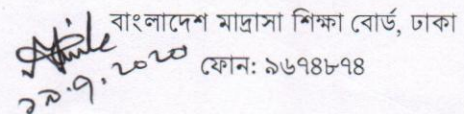 বাংলাদেশ মাদ্রাসা শিক্ষা বোর্ড, ঢাকা
ফোন: ৯৬৭৪৮৭৪
১৯.৭.২০২০